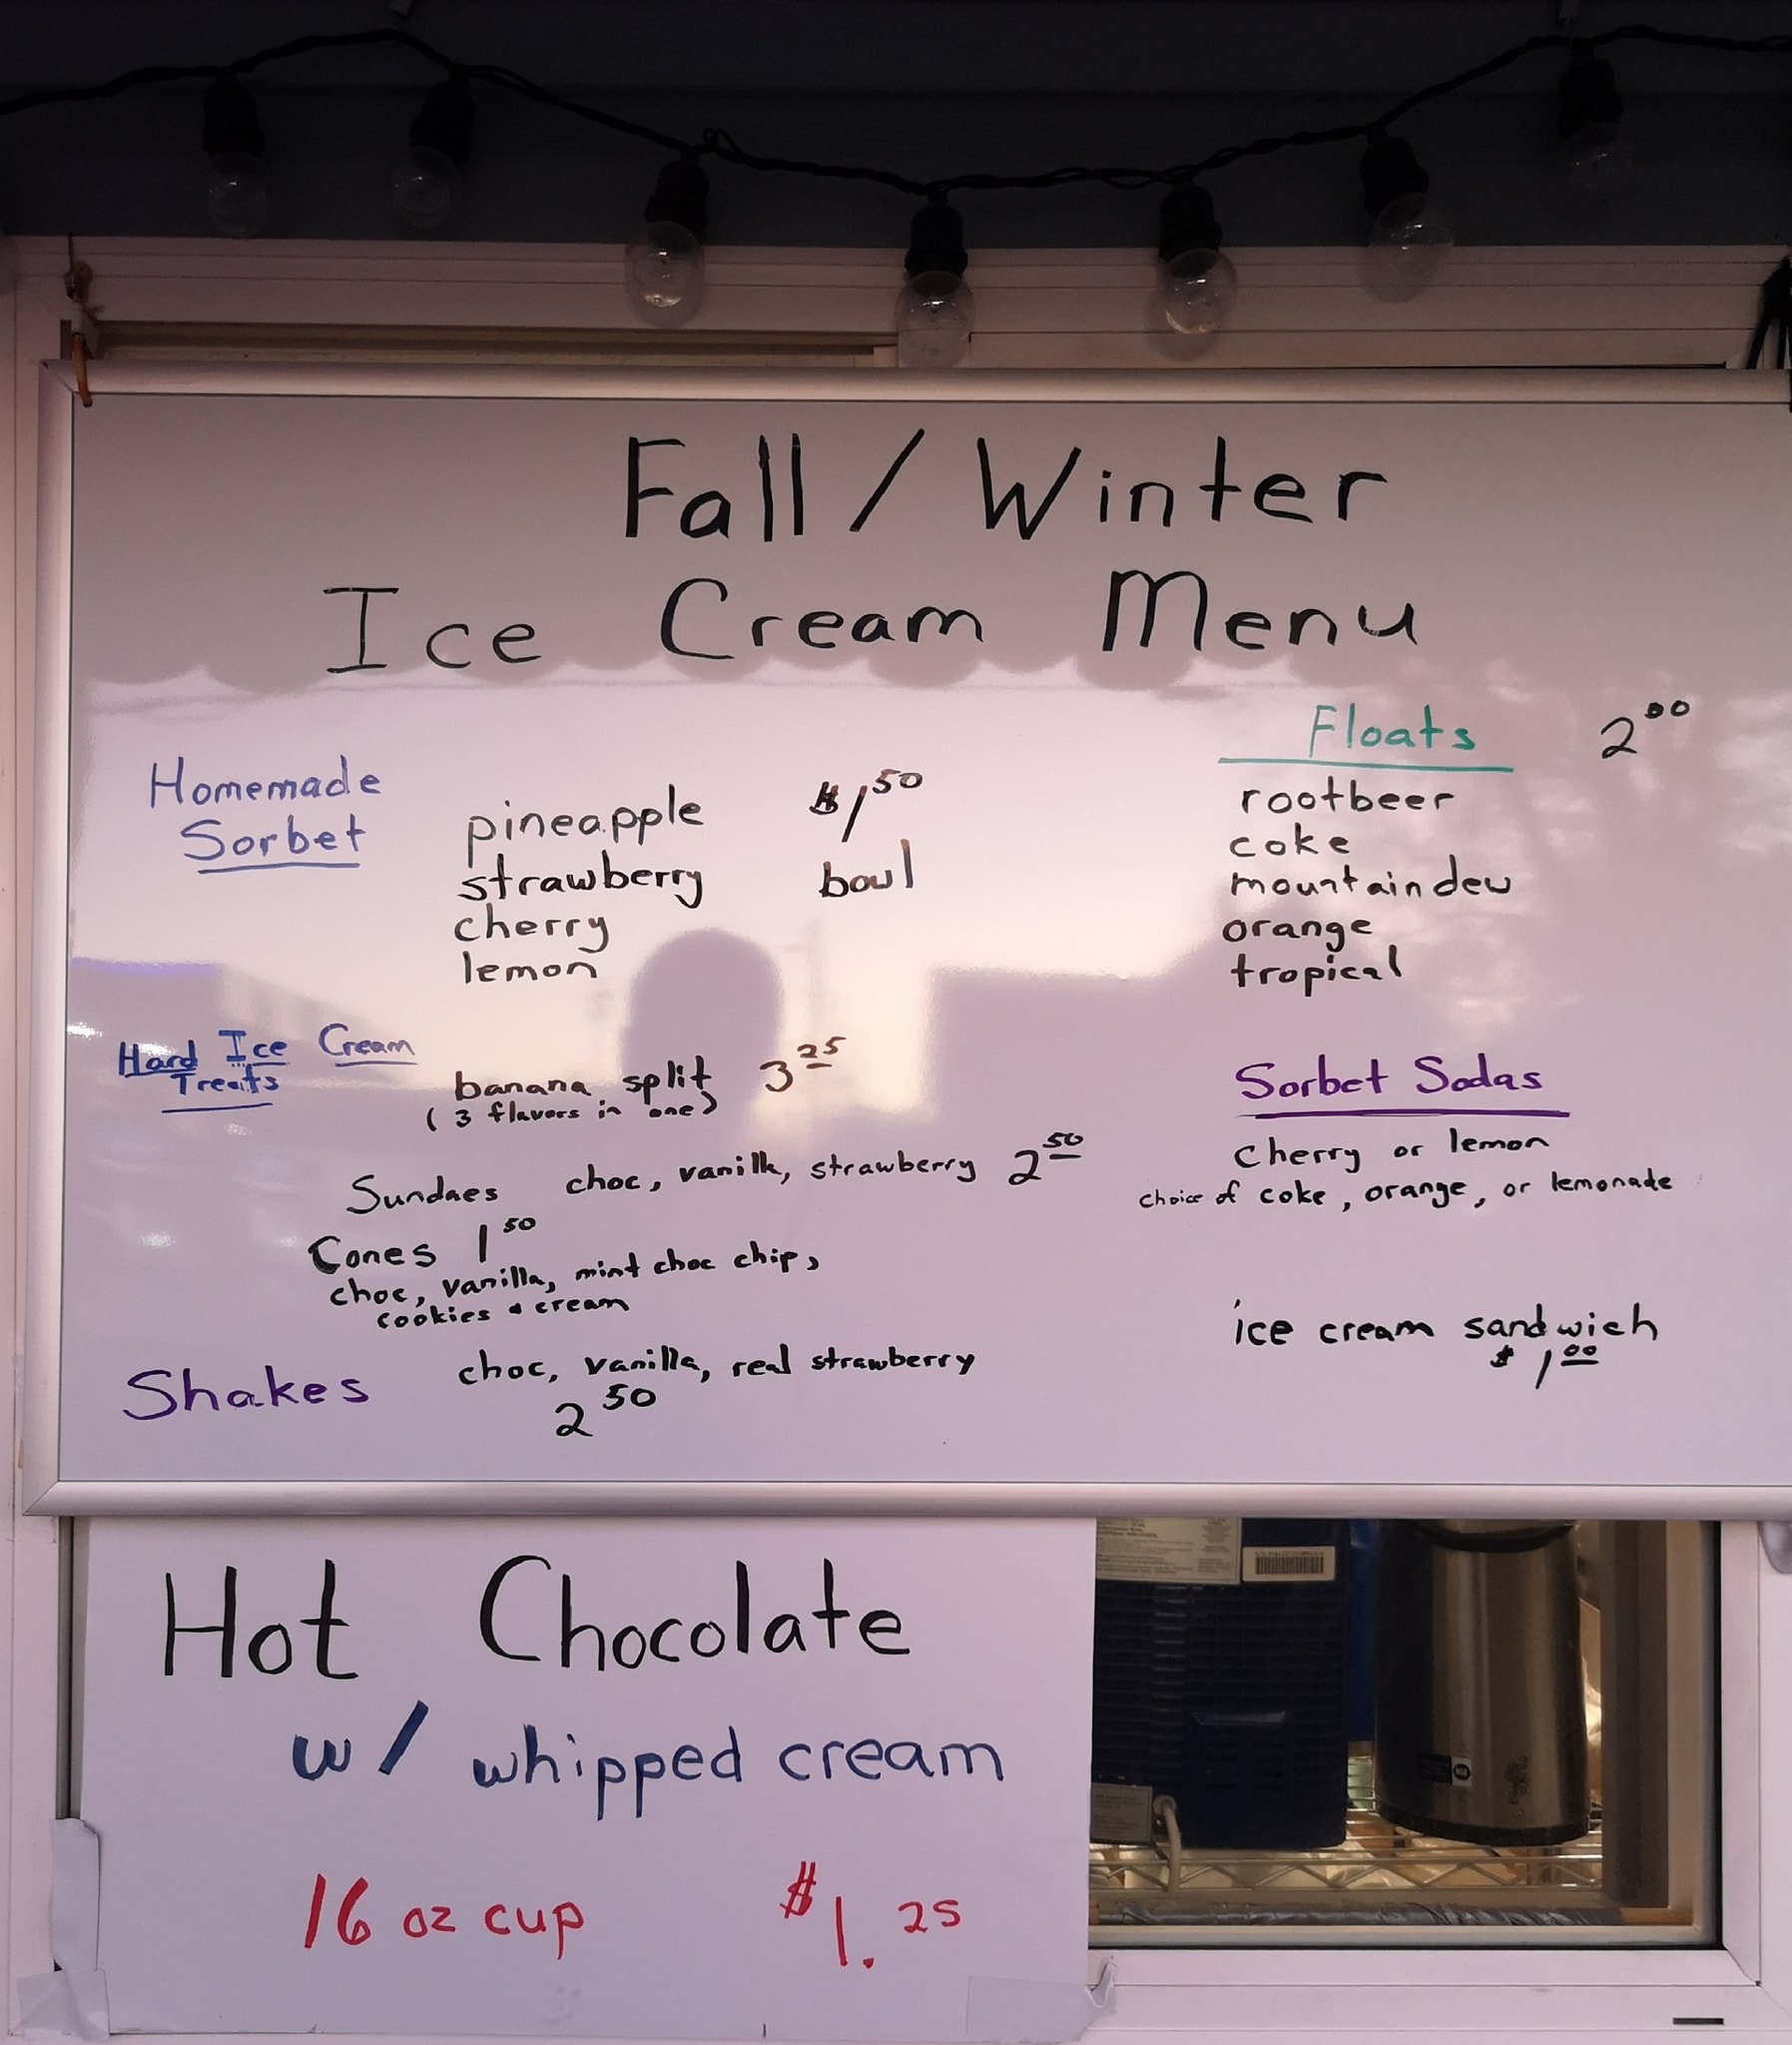 Fall / Winter
Ice Cream Menu
Homemade
Sorbet
pineapple $1 50
strawberry bowl
cherry
lemon
Floats 2 00
rootbeer
coke
mountain dew
orange
tropical
Hard Ice Cream
Treats
banana split 3 25
( 3 flavors in one)
Sundaes choc, vanilla, strawberry 2 50
Cones 1 50
choc, vanilla, mint choc chip,
cookies & cream
Shakes choc, vanilla, real strawberry
2 50
Sorbet Sodas
cherry or lemon
choice of coke, orange, or lemonade
ice cream sandwich
$ 1 00
Hot Chocolate
w/ whipped cream
16 oz cup $1. 25